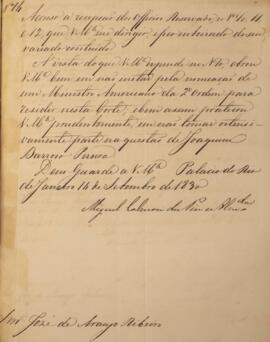 Nº 16
Accuso a recepção dos Officios Reservados nºs 10, 11
e 12, que V. Mce me dirigio, e fico inteirado do seu
variado conteudo.
A vista do que V. Mce responde no Nº 10, obrou
V. Mce bem em não instar pela nomeação de
um Ministro Americano da 2ª ordem para
residir nesta Corte, e bem assim praticou
V. Mce prudentemente, em não tomar ostensi-
vamente parte na questão de Joaquim
Barroso
Deus Guarde a V. Mce Palacio do Rio
de Janeiro 14 de Setembro de 1830
Miguel Calmon du Pin e Almda
Snr José de Araujo Ribeiro